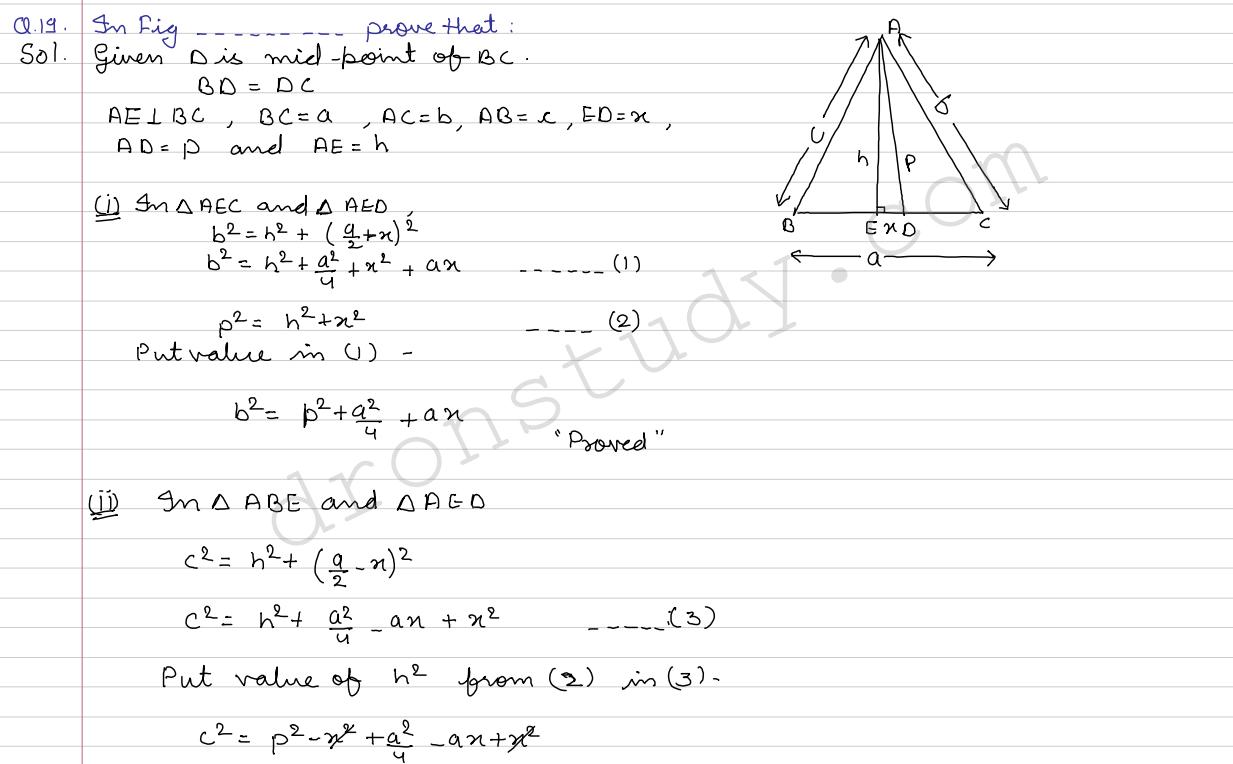 Q.19. In Fig --------- prove that :
Sol. Given D is mid-point of BC.
BD = DC
AE⊥BC , BC=a , AC=b, AB=c, ED=x,
AD=p and AE=h
(i) In △AEC and △AED,
b²=h²+(a/2+x)²
b²=h²+a²/4+x²+ax ------(1)
p²= h²+x² ----(2)
Put value in (1) -
b²= p²+a²/4+ax
"Proved"
(ii) In △ABE and △AED
c²= h²+(a/2-x)²
c²= h²+a²/4-ax+x² -----(3)
Put value of h² from (2) in (3)-
c²= p²-x²+a²/4-ax+x²
A
c
b
h
p
B
E
x
D
C
a
dronstudy.com